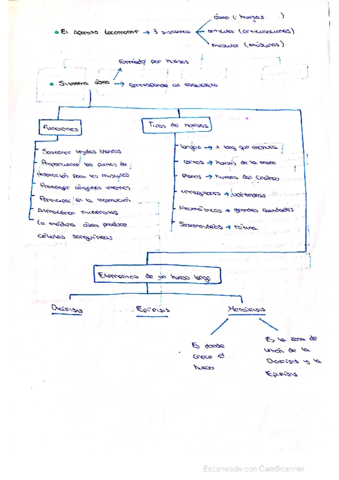 óseo ( huesos )
• El Aparato Locomotor → 3 sistemas articular (articulaciones)
muscular (músculos)
Formado por huesos
• Sistema óseo → corresponde al esqueleto
Funciones
Tipos de huesos
- Sostener tejidos blandos
- Proporcionar los puntos de
inserción para los músculos
- Proteger órganos internos
- Participar en la locomoción
- Almacenar minerales
- La médula ósea produce
células sanguíneas
- Largos → + long que anchura
- Cortos → huesos de la mano
- Planos → huesos del cráneo
- Irregulares → vértebras
- Neumáticos → grandes cavidades
- Sesamoideos → rótula
Elementos de un hueso largo
Diáfisis
Epífisis
Metáfisis
Es donde
crece el
hueso
Es la zona de
unión de la
Diáfisis y la
Epífisis
Escaneado con CamScanner